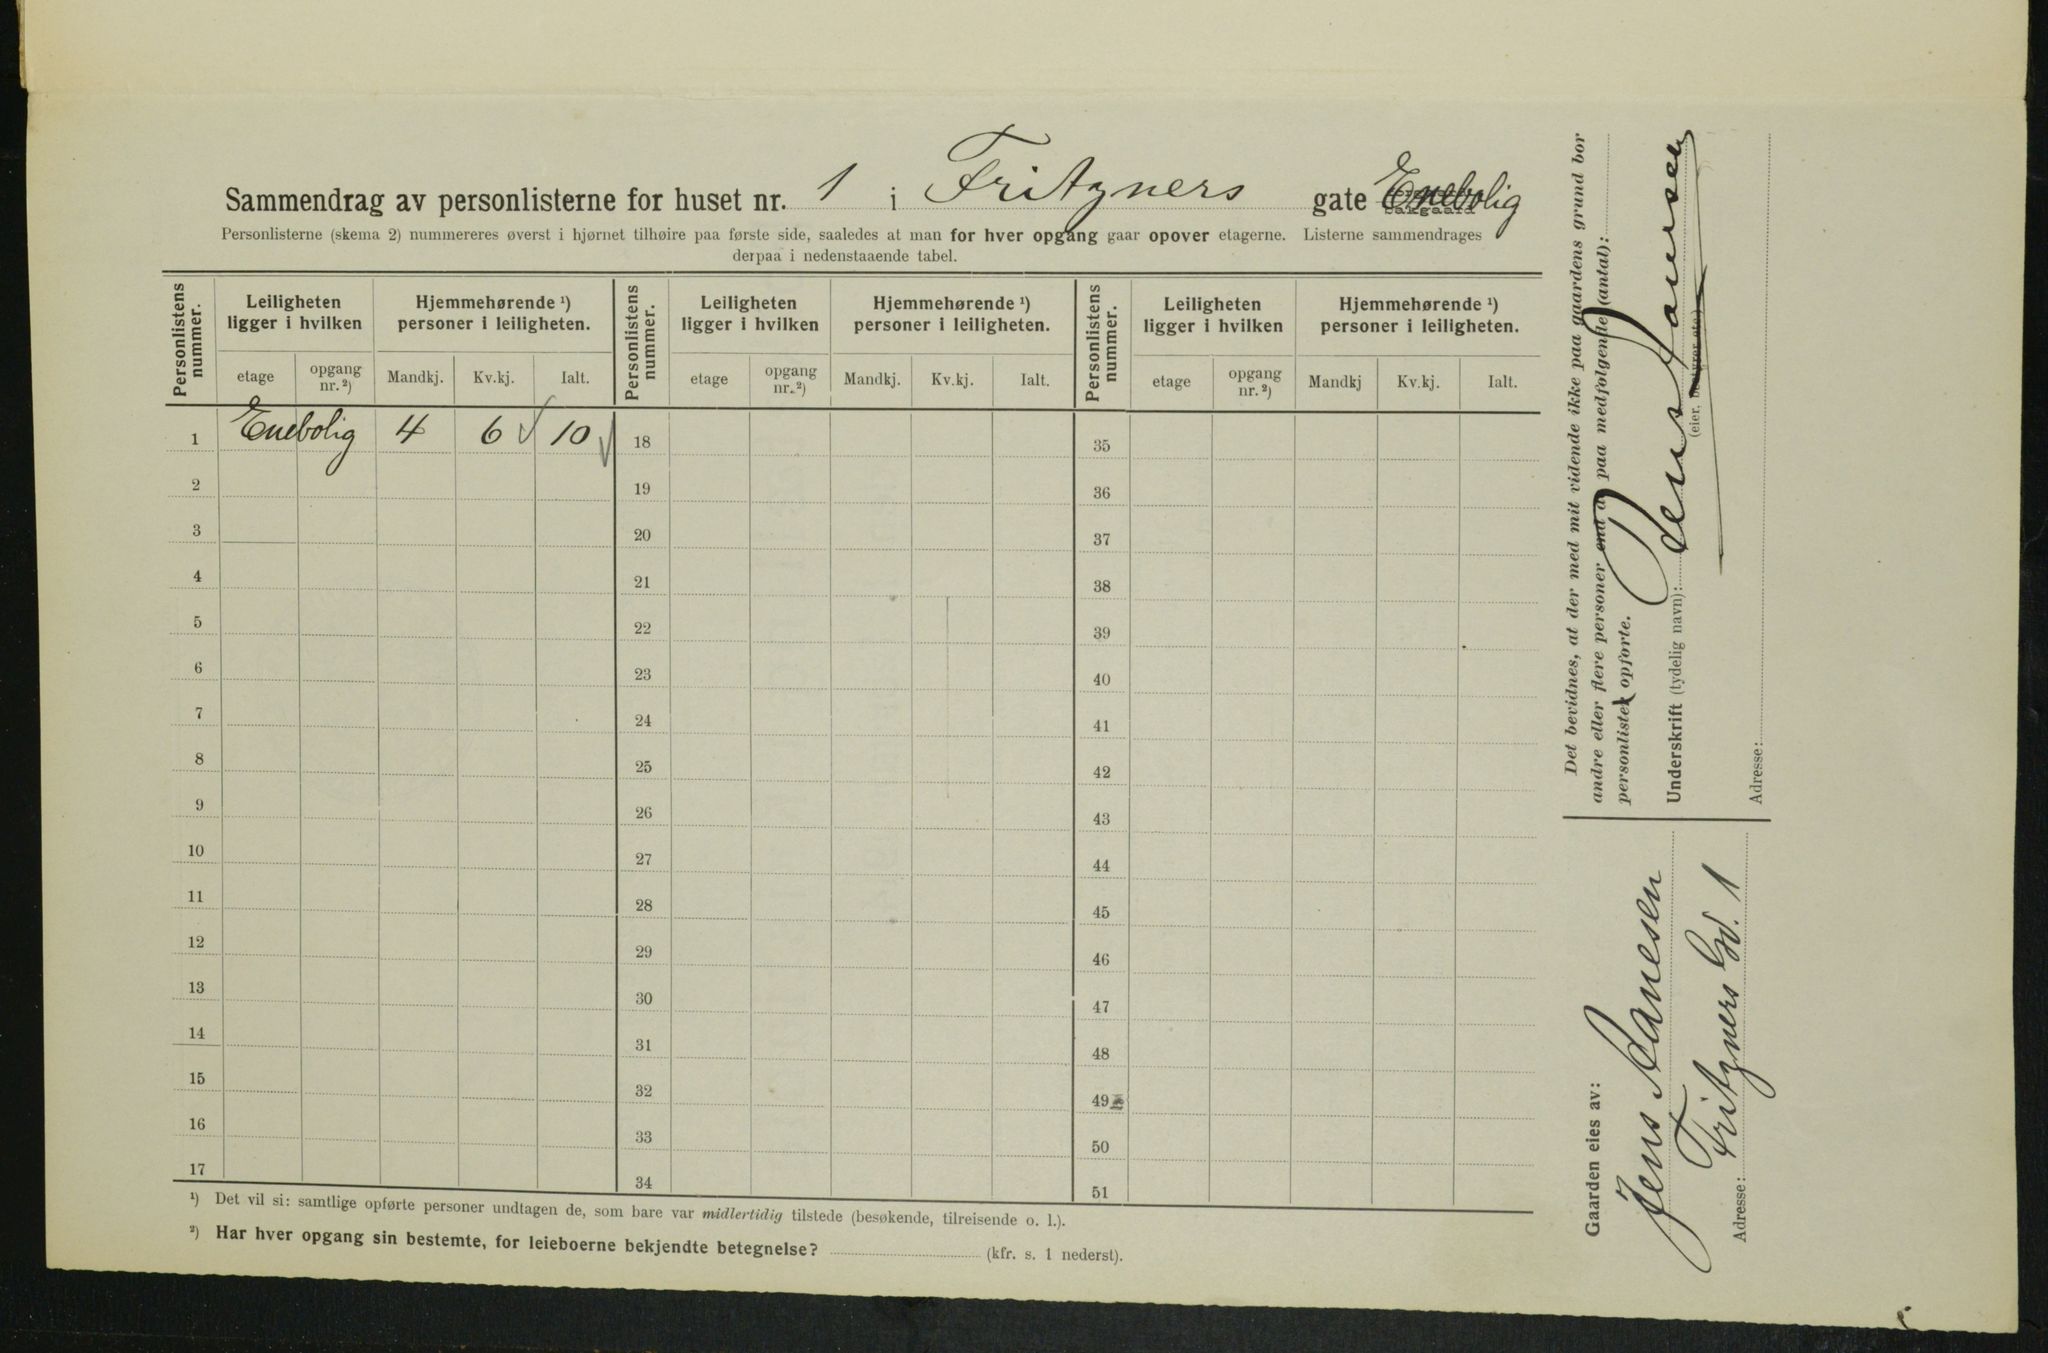 Sammendrag av personlisterne for huset nr. 1 i Fritzners gate Enebolig
Personlisterne (skema 2) nummereres øverst i hjørnet tilhøire paa første side, saaledes at man for hver opgang gaar opover etagerne. Listerne sammendrages
derpaa i nedenstaaende tabel.
Personlistens nummer. Leiligheten ligger i hvilken Hjemmehørende ¹) personer i leiligheten. Personlistens nummer. Leiligheten ligger i hvilken Hjemmehørende ¹) personer i leiligheten. Personlistens nummer. Leiligheten ligger i hvilken Hjemmehørende ¹) personer i leiligheten.
etage opgang nr. ²) Mandkj. Kv.kj. Ialt. etage opgang nr. ²) Mandkj. Kv.kj. Ialt. etage opgang nr. ²) Mandkj Kv.kj. Ialt.
1 Enebolig 4 6 10 18 35
2 19 36
3 20 37
4 21 38
5 22 39
6 23 40
7 24 41
8 25 42
9 26 43
10 27 44
11 28 45
12 29 46
13 30 47
14 31 48
15 32 49
16 33 50
17 34 51
¹) Det vil si: samtlige opførte personer undtagen de, som bare var midlertidig tilstede (besøkende, tilreisende o. l.).
²) Har hver opgang sin bestemte, for leieboerne bekjendte betegnelse? (kfr. s. 1 nederst).
Det bevidnes, at der med mit vidende ikke paa gaardens grund bor
andre eller flere personer end de paa medfølgende (antal):
personlister opførte.
Underskrift (tydelig navn): Jens Hansen
(eier, bestyrer etc.)
Adresse:
Gaarden eies av:
Jens Hansen
Adresse: Fritzners Gd. 1